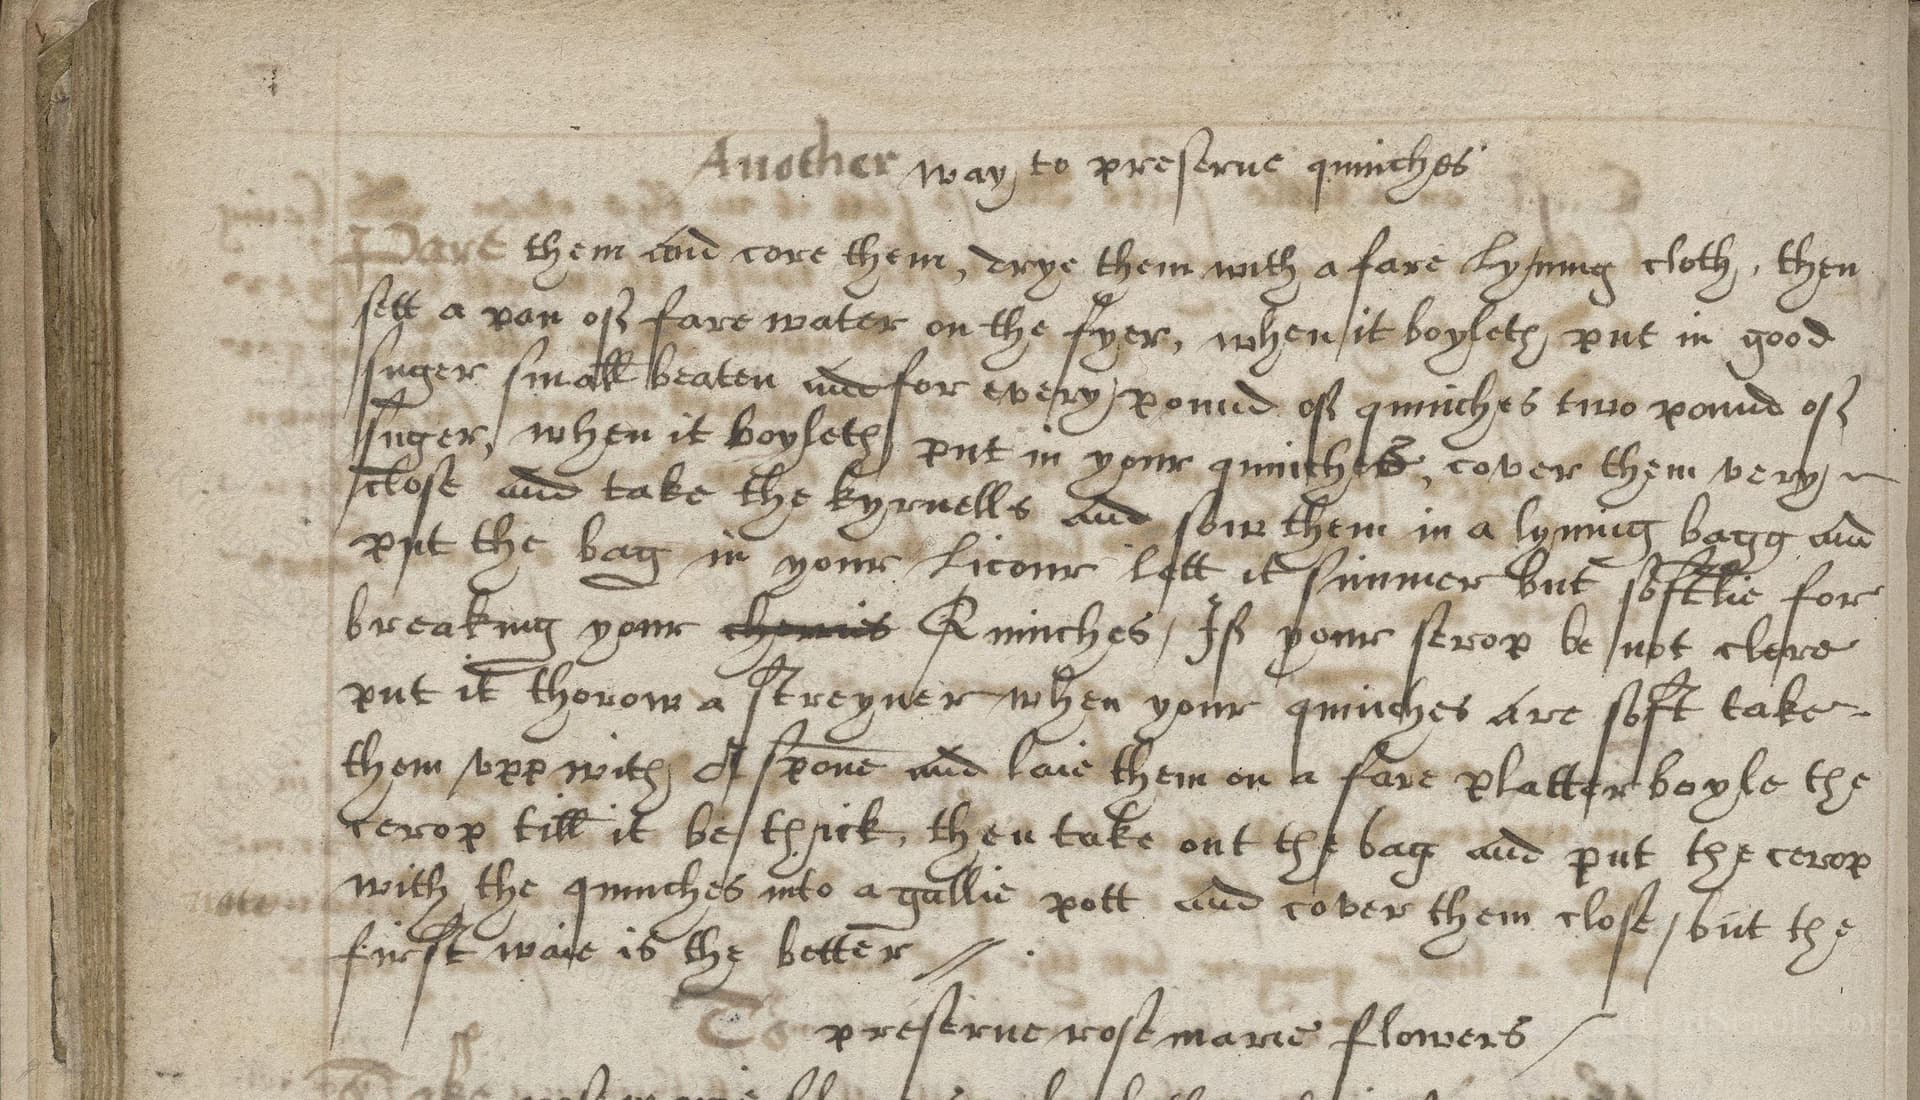 Another way to preserue quinches
Pare them and core them, drye them with a fare lyning cloth, then
sett a pan of fare water on the fyer, when it boyleth put in good
suger small beaten and for every pound of quinches two pound of
suger, when it boyleth put in your quinches, cover them very
close and take the kyrnells and sow them in a lyning bagg and
put the bag in your licour lett it simmer but softlie for
breaking your cherries Quinches, If your serop be not clere
put it thorow a streyner when your quinches are soft take
them vpp with A spone and laie them on a fare platter boyle the
cerop till it be thick, then take out the bag and put the cerop
with the quinches into a gallie pott and cover them close, but the
first waie is the better
To preserue rosemarie flowers